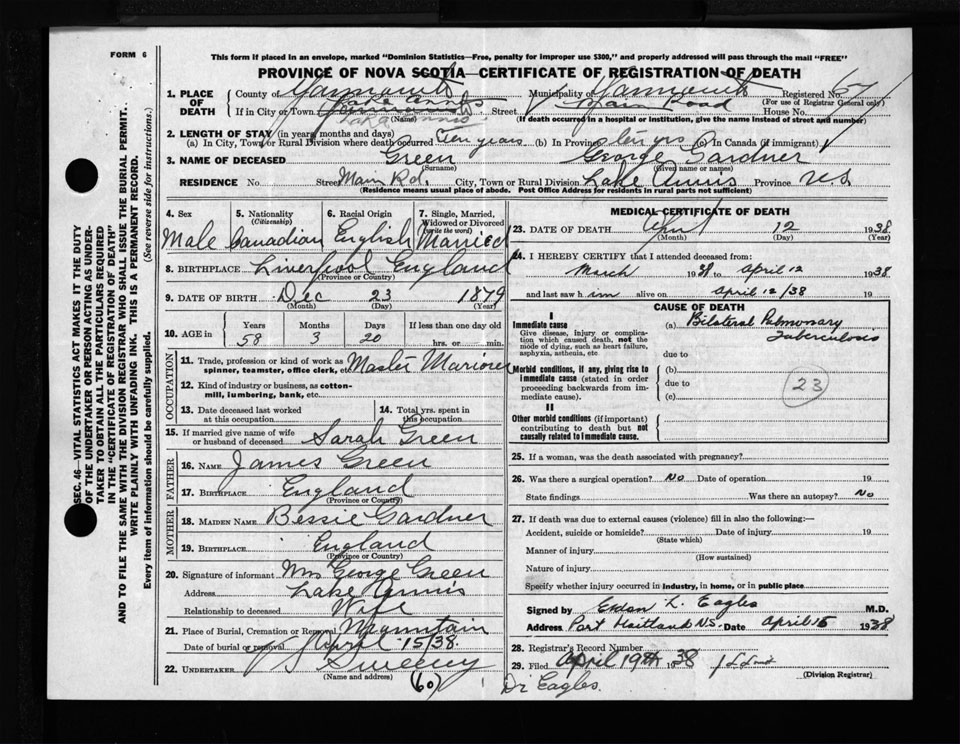 FORM 6
This form if placed in an envelope, marked "Dominion Statistics—Free, penalty for improper use $300," and properly addressed will pass through the mail "FREE"
PROVINCE OF NOVA SCOTIA—CERTIFICATE OF REGISTRATION OF DEATH
SEC. 46—VITAL STATISTICS ACT MAKES IT THE DUTY
OF THE UNDERTAKER OR PERSON ACTING AS UNDER-
TAKER TO OBTAIN ALL THE PARTICULARS REQUIRED
IN THE "CERTIFICATE OF REGISTRATION OF DEATH"
AND TO FILE THE SAME WITH THE DIVISION REGISTRAR WHO SHALL ISSUE THE BURIAL PERMIT.
WRITE PLAINLY WITH UNFADING INK. THIS IS A PERMANENT RECORD.
Every item of information should be carefully supplied. (See reverse side for instructions.)
1. PLACE OF DEATH County of Yarmouth Municipality of Yarmouth Registered No.
(For use of Registrar General only)
If in City or Town Lake Annis Street Main Road House No.
(Name) (If death occurred in a hospital or institution, give the name instead of street and number)
2. LENGTH OF STAY (in years, months and days)
(a) In City, Town or Rural Division where death occurred Ten years (b) In Province ten yrs (c) In Canada (if immigrant)
3. NAME OF DECEASED Green George Gardner
(Surname) (Given name or names)
RESIDENCE No. Street Main Rd. City, Town or Rural Division Lake Annis Province N.S.
(Residence means usual place of abode. Post Office Address for residents in rural parts not sufficient)
4. Sex 5. Nationality (Citizenship) 6. Racial Origin 7. Single, Married, Widowed or Divorced (write the word)
Male Canadian English Married
8. BIRTHPLACE Liverpool England
(Province or Country)
9. DATE OF BIRTH Dec 23 1879
(Month) (Day) (Year)
10. AGE in Years Months Days If less than one day old
58 3 20 hrs. or min.
OCCUPATION
11. Trade, profession or kind of work as spinner, teamster, office clerk, etc. Master Mariner
12. Kind of industry or business, as cotton-mill, lumbering, bank, etc.
13. Date deceased last worked at this occupation 14. Total yrs. spent in this occupation
15. If married give name of wife or husband of deceased Sarah Green
FATHER
16. NAME James Green
17. BIRTHPLACE England
(Province or Country)
MOTHER
18. MAIDEN NAME Bessie Gardner
19. BIRTHPLACE England
(Province or Country)
20. Signature of informant Mrs George Green
Address Lake Annis
Relationship to deceased Wife
21. Place of Burial, Cremation or Removal Mountain
Date of burial or removal April 15/38.
22. UNDERTAKER Sweeny
(Name and address)
(60)
MEDICAL CERTIFICATE OF DEATH
23. DATE OF DEATH April 12 1938
(Month) (Day) (Year)
24. I HEREBY CERTIFY that I attended deceased from:
March 1938 to April 12 1938
and last saw him alive on April 12/38 19
CAUSE OF DEATH
I
Immediate cause (a) Bilateral Pulmonary Tuberculosis
Give disease, injury or complication which caused death, not the mode of dying, such as heart failure, asphyxia, asthenia, etc.
due to
Morbid conditions, if any, giving rise to immediate cause (stated in order proceeding backwards from immediate cause). (b)
due to
(c)
23
II
Other morbid conditions (if important) contributing to death but not causally related to immediate cause.
25. If a woman, was the death associated with pregnancy?
26. Was there a surgical operation? No Date of operation 19
State findings Was there an autopsy? No
27. If death was due to external causes (violence) fill in also the following:—
Accident, suicide or homicide? Date of injury 19
(State which)
Manner of injury
(How sustained)
Nature of injury
Specify whether injury occurred in industry, in home, or in public place
Signed by L. Eagles M.D.
Address Port Maitland N.S. Date April 15 1938
28. Registrar's Record Number
29. Filed April 19th 1938
(Division Registrar)
Dr Eagles.